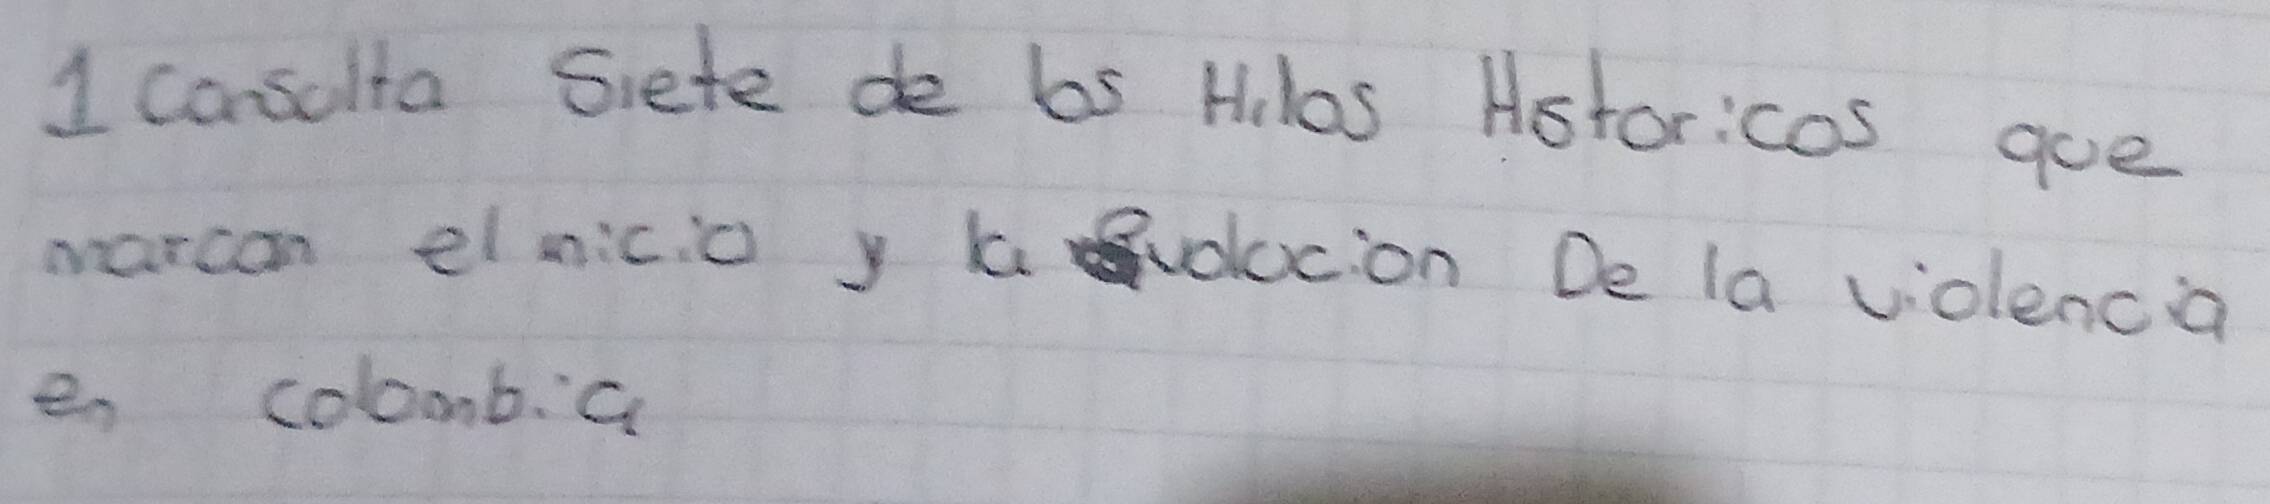 1 Consulta Siete de los Hilos Historicos que
marcan el inicio y la Evolucion De la violencia
en colombia